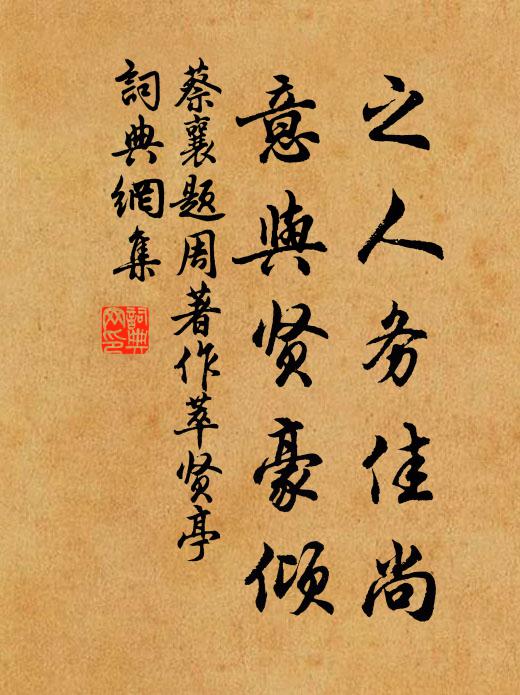 之人务佳尚
意與贤豪倾
蔡襄题周著作萃贤亭
詞典網集
詞典
网印